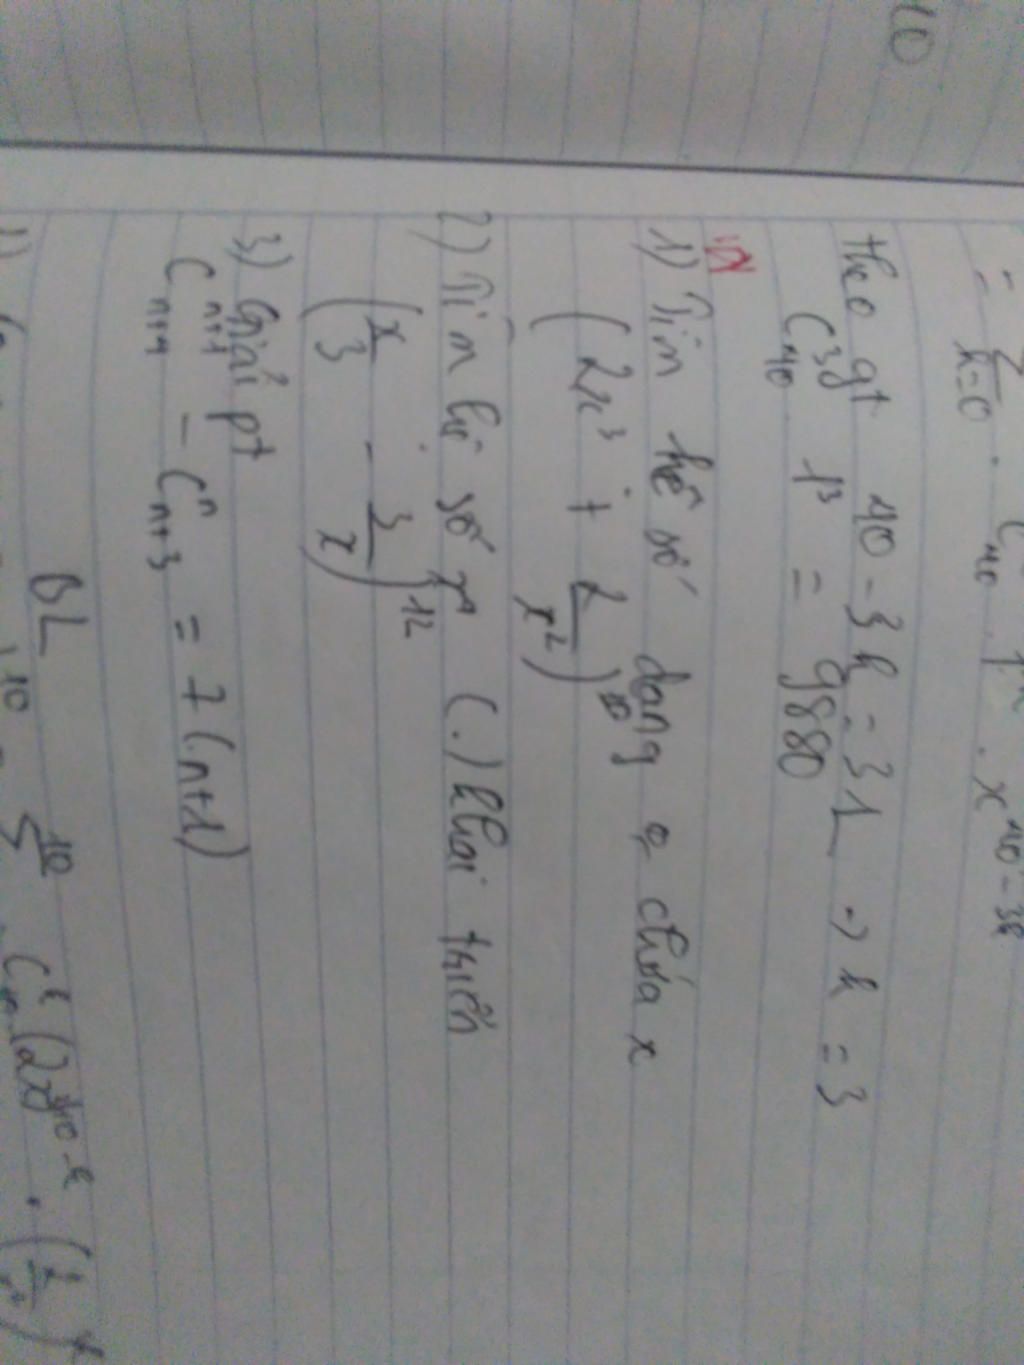 10
= Σ k=0 . C 40 . 1^k . x^40-3k
theo gt 40 - 3k = 31 → k = 3
C^3_40 . 1^3 = 9880
1) Tìm hệ số dạng chứa x
(2x^3 + 2/x^2)^10
2) Tìm hệ số x^4 (.) khai triển
(x/3 - 3/x)^12
3) Giải pt
C^{n+1}_{n+4} - C^n_{n+3} = 7(n+2)
BL
1) )^10 = Σ^10 C^k (2x^3)^10-k . (2/x^2)^k